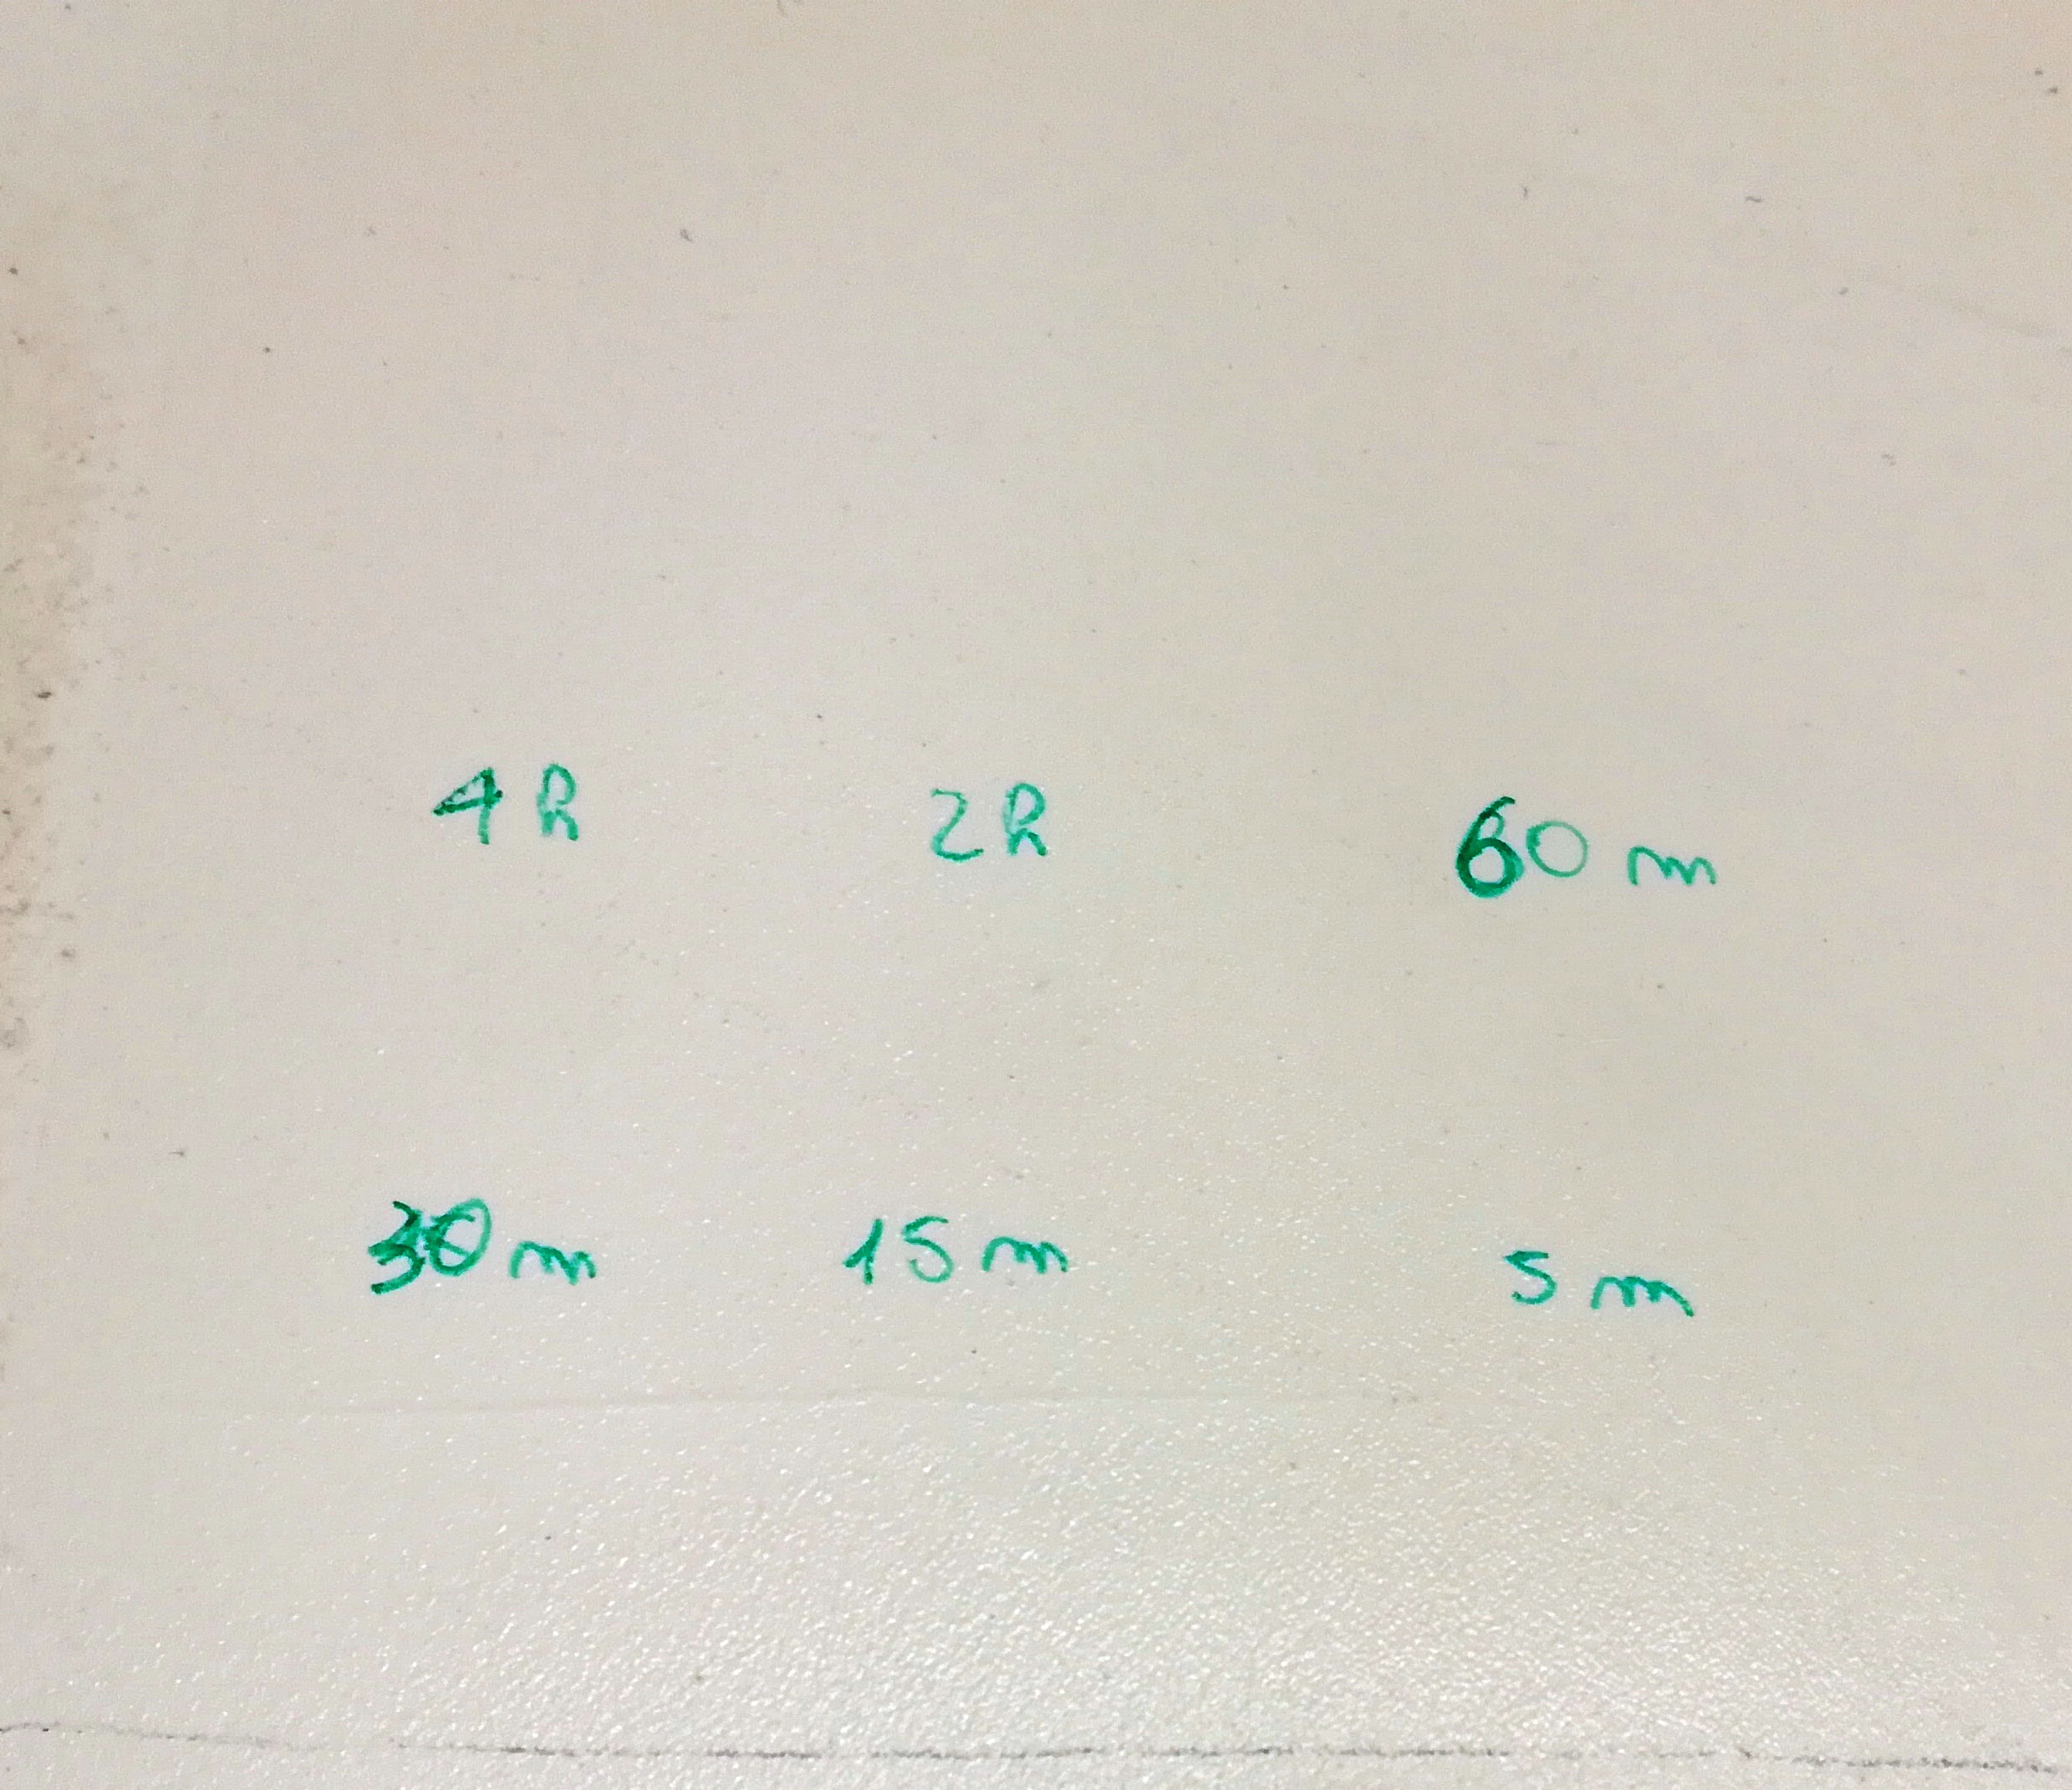 4 h 2 h 60 m
30 m 15 m 5 m